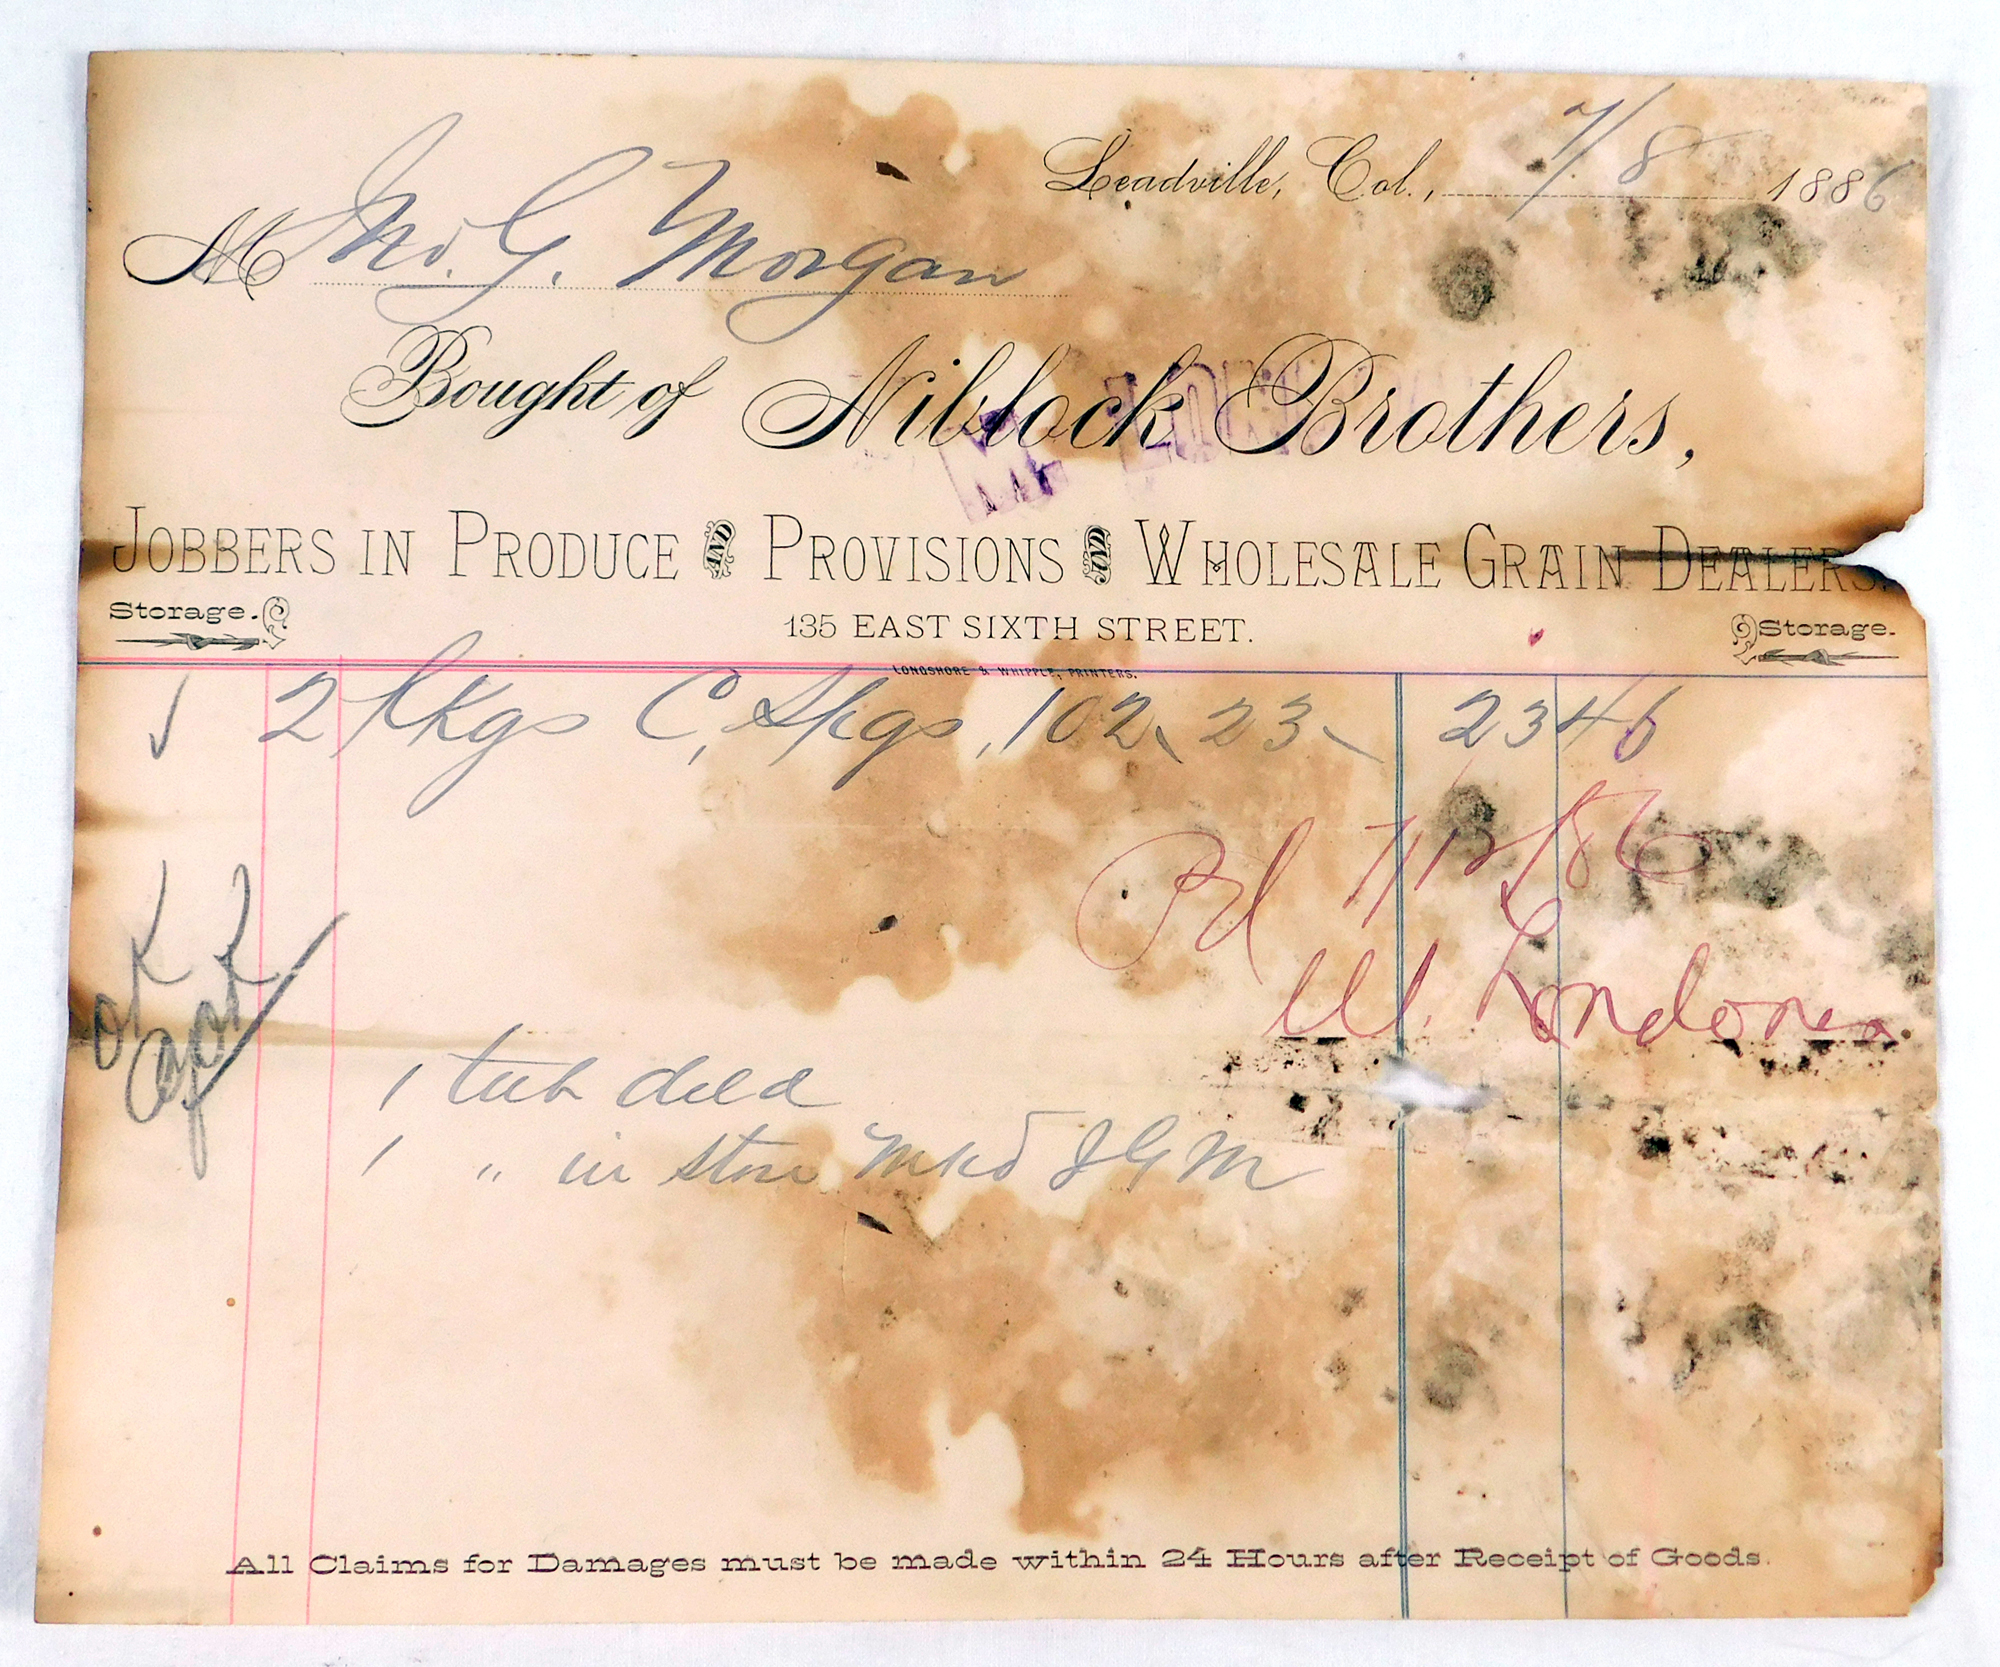 Leadville, Col., 7/8 1886
M Jno. G. Morgan
Bought of Niblock Brothers,
JOBBERS IN PRODUCE AND PROVISIONS AND WHOLESALE GRAIN DEALERS.
Storage. 135 EAST SIXTH STREET. Storage.
LONGSHORE & WHIPPLE, PRINTERS.
2 pkgs 102 23 23 46
Pd 7/12/86
OK
1 tub deld
1 " in store Mkd JGM
All Claims for Damages must be made within 24 Hours after Receipt of Goods.